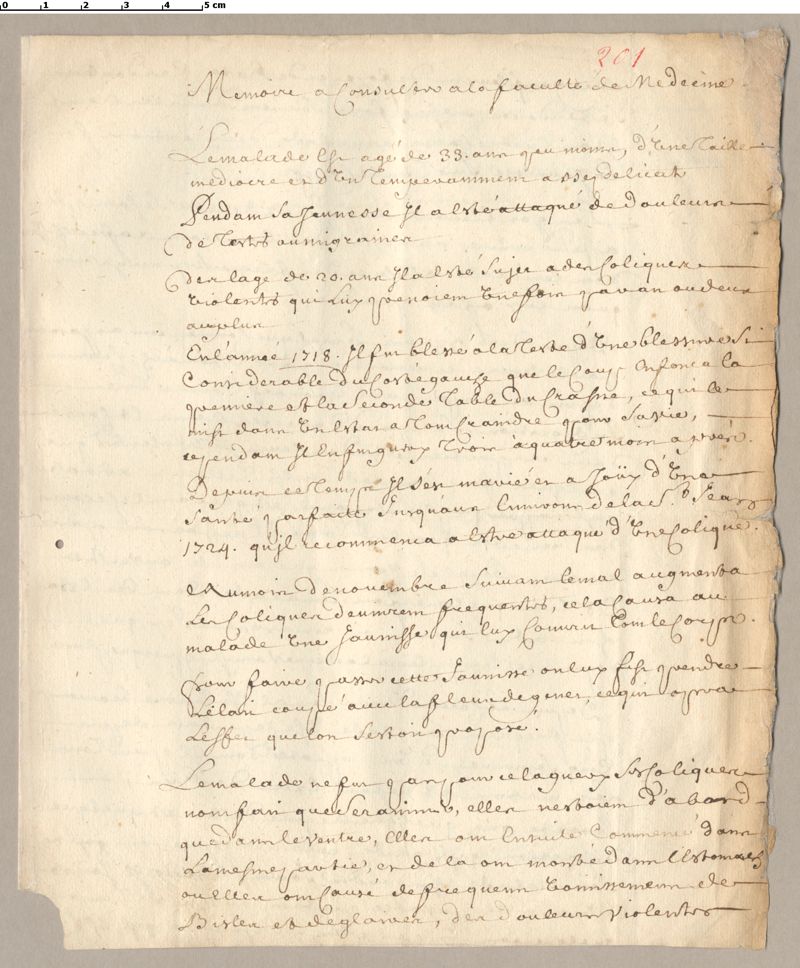 0 1 2 3 4 5 cm
201
Memoire a Consulter a la faculté de Medecine.
Le malade Est agé de 33. ans peu moins, d'Une Taille
mediocre et d'Un Temperamment assez delicat
Pendant Sa Jeunesse Il a Esté attaqué de douleurs
de Testes ou migraines
Des lage de 20. ans Il a Esté Sujet a des Coliques
Violentes qui Luy prenoient Une fois par an ou deux
au plus
En l'année 1718. Il fut blessé a la Teste d'Une blessure Si
Considerable du Costé gauche que le Coup Enfonça la
premiere et la Seconde Table du Crasne, ce qui le
mist dans Un Estat a Tout Craindre pour Sa vie,
cependant Il En fut guery Trois à quatre mois aprés.
Depuis ce Temps Il s'est marié et a Joüy d'Une
Santé parfaite Jusqu'aux Environs de la S.t Jean
1724. qu'Il recommença a Estre attaqué d'Une Colique.
Au mois de novembre Suivant le mal augmenta
Les Coliques devinrent frequentes, cela Causa au
malade Une Jaunisse qui luy Couvrit Tout le Corps.
Pour faire passer cette Jaunisse on luy fist prendre
Le lait coupé avec la fleur de genet, ce qui opera
L'effet que lon s'estoit proposé.
Le malade ne fut pas pour cela guery Ses Coliques
n'ont fait que Se ranimer, elles n'estoient d'abord
que dans le ventre, Elles ont Ensuite Commencé dans
La mesme partie, et de la ont monté dans l'Estomach
ou Elles ont causé de frequents Vomissements de
Biles et de glaires, des douleurs Violentes